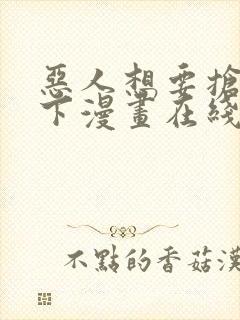 惡人想要搶
下漫畫在綫
不點的香菇漢